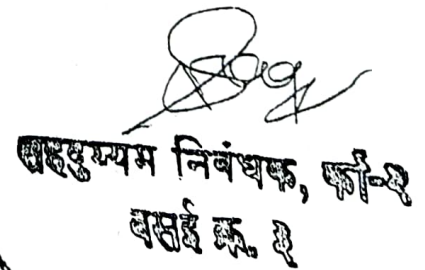 सहदुय्यम निबंधक, वर्ग-२
वसई क्र. २